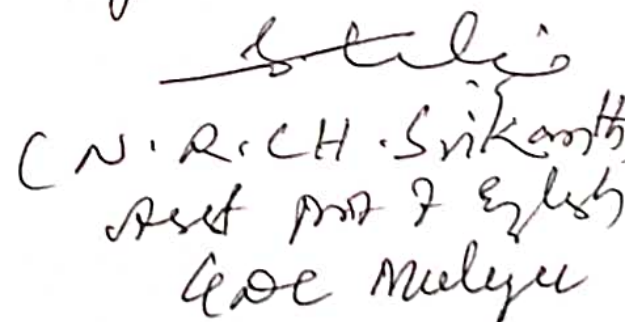 (N.R.CH.Srikanth
Asst Prof of English
GDC Mulugu